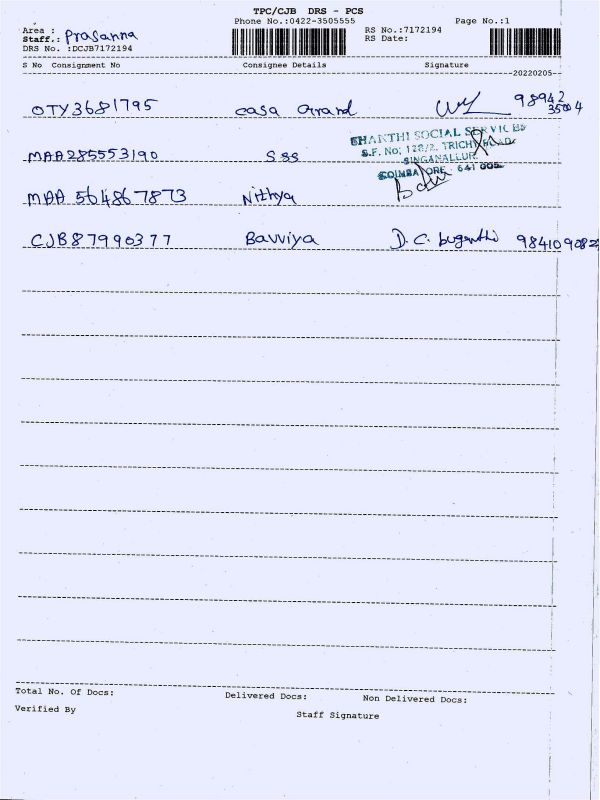 TPC/CJB DRS - PCS
Phone No.:0422-3505555 Page No.:1
Area :
Staff.: Prasanna
RS No.:7172194
RS Date:
DRS No. :DCJB7172194
S No Consignment No Consignee Details Signature
20220205
OTY3681795 casa Grand 98942
35004
SHANTHI SOCIAL SERVICES
S.F. No; 128/2, TRICHY ROAD
SINGANALLUR
COIMBATORE 641 005
MAA285553190 SSS
MAA 564867873 Nithya
CJB87990377 Bavviya D.C. 984109082
Total No. Of Docs: Delivered Docs: Non Delivered Docs:
Verified By Staff Signature